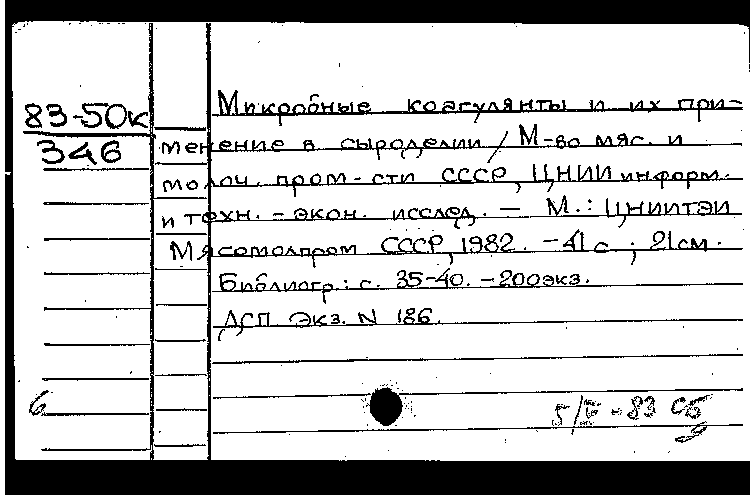 83-50к
346
Микробные коагулянты и их при-
менение в сыроделии / М-во мяс. и
молоч. пром-сти СССР, ЦНИИ информ.
и техн.-экон. исслед. — М.: ЦНИИТЭИ
Мясомолпром СССР, 1982. - 41 с.; 21 см.
Библиогр.: с. 35-40. - 200 экз.
ДСП Экз. N 186.
6
5/V - 83 Сб